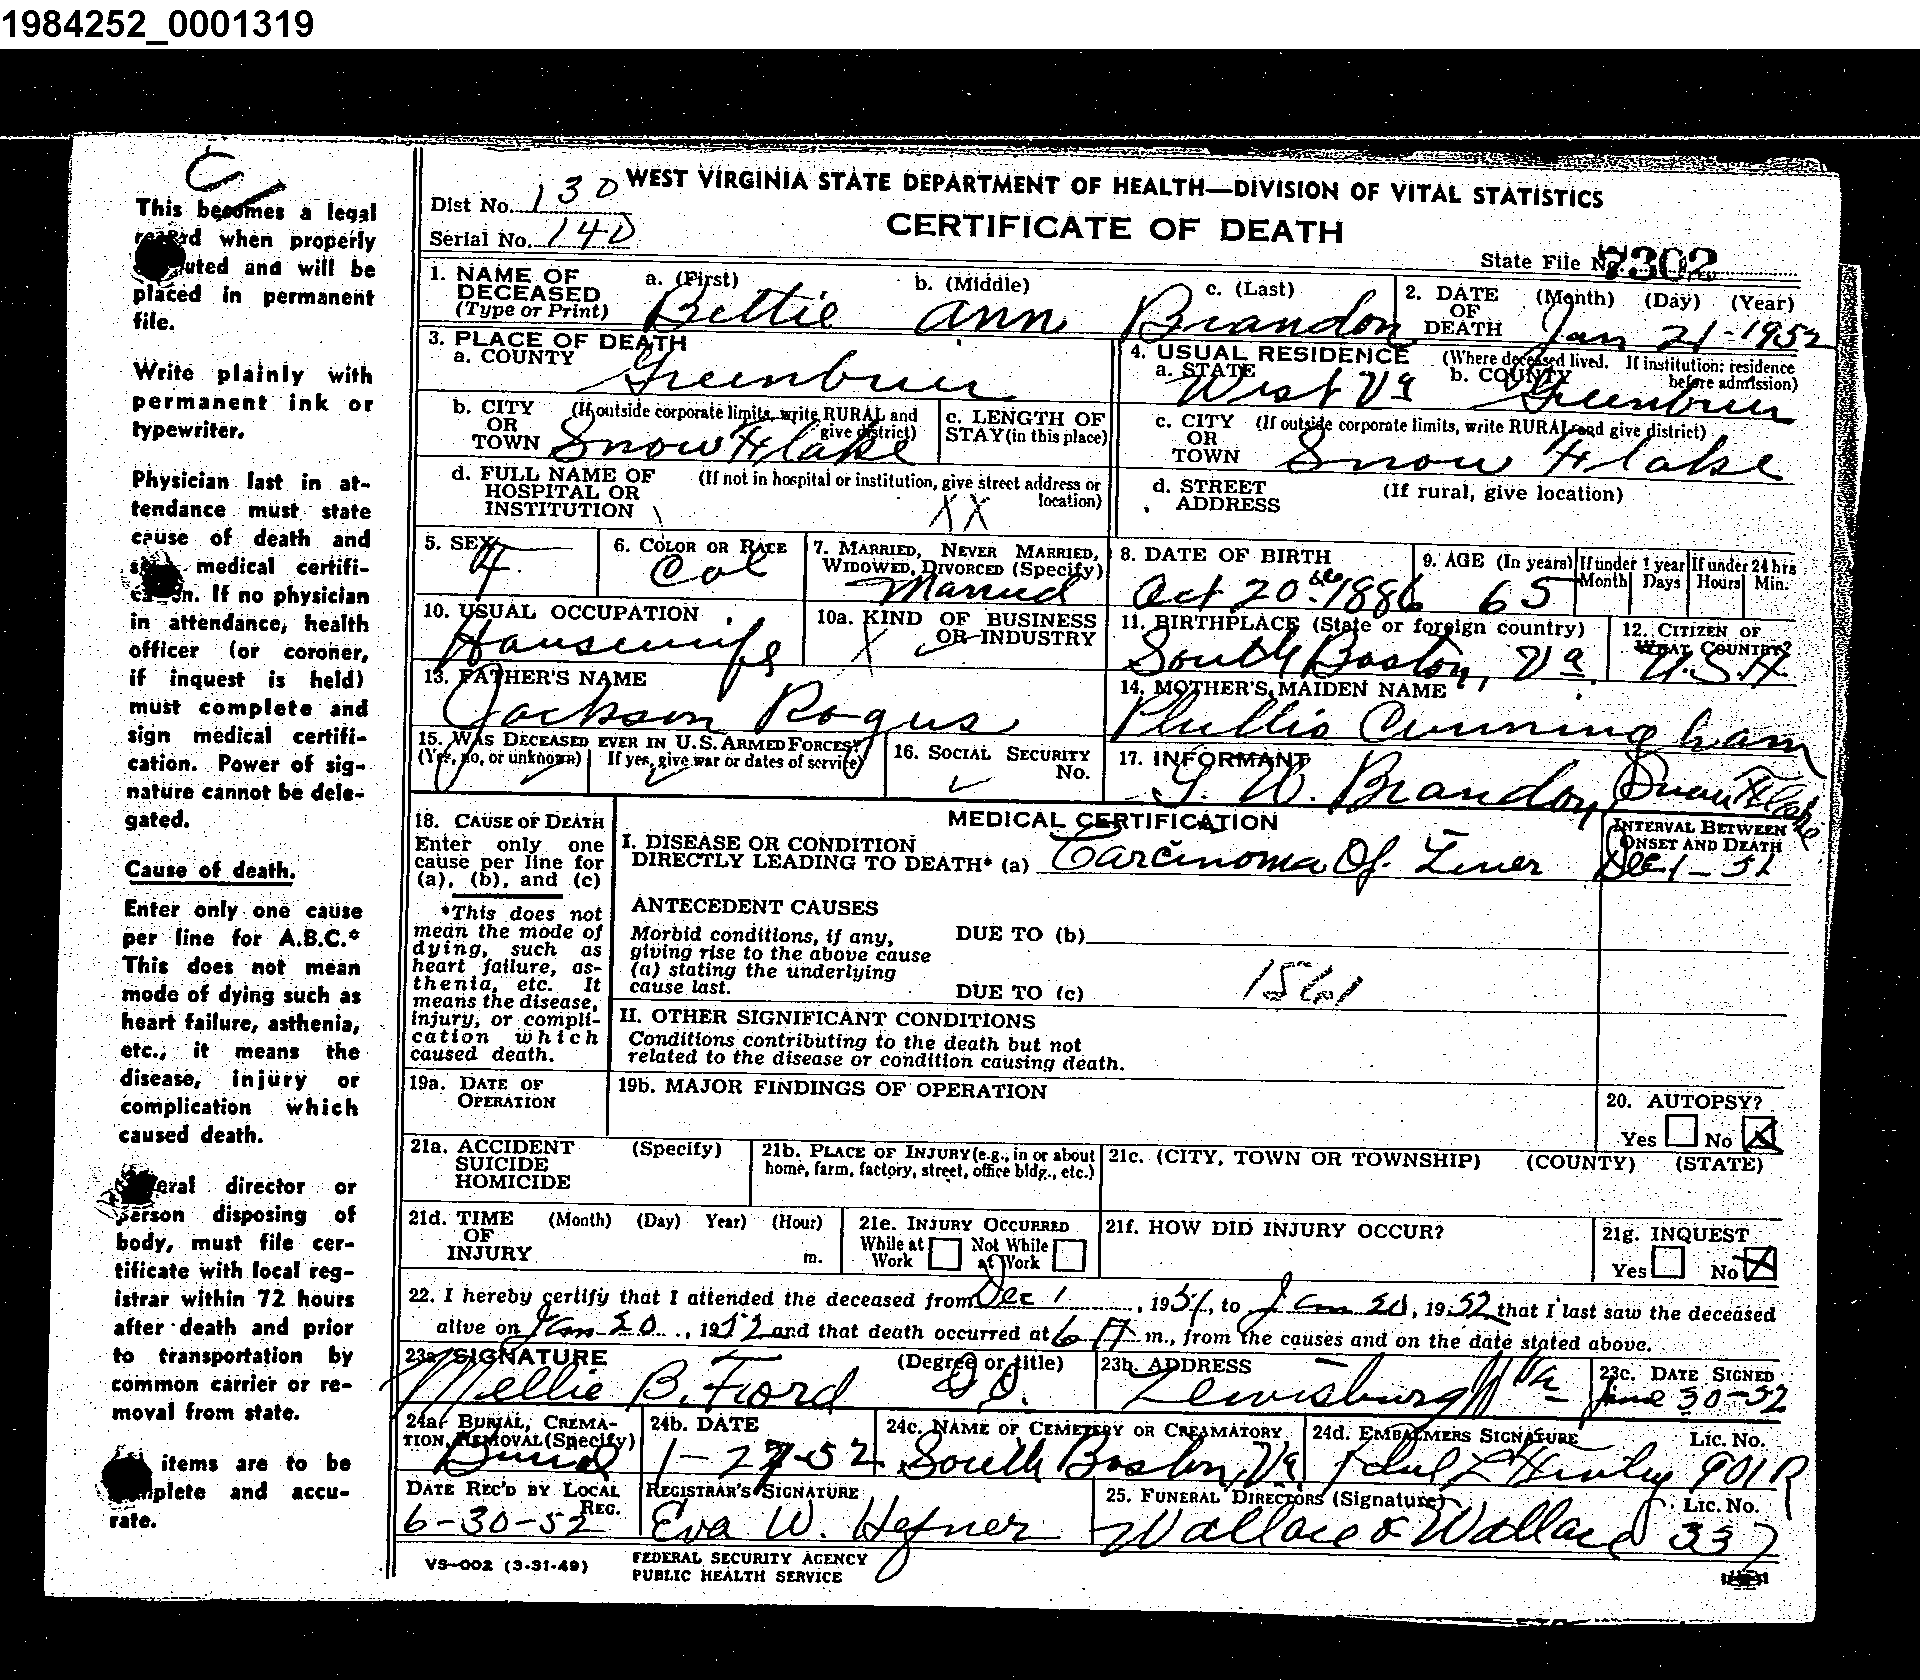 1984252_0001319
This becomes a legal
when properly
and will be
placed in permanent
file.
Write plainly with
permanent ink or
typewriter.
Physician last in at-
tendance must state
cause of death and
medical certifi-
If no physician
in attendance, health
officer (or coroner,
if inquest is held)
must complete and
sign medical certifi-
cation. Power of sig-
nature cannot be dele-
gated.
Cause of death.
Enter only one cause
per line for A.B.C.*
This does not mean
mode of dying such as
heart failure, asthenia,
etc., it means the
disease, injury or
complication which
caused death.
director or
person disposing of
body, must file cer-
tificate with local reg-
istrar within 72 hours
after death and prior
to transportation by
common carrier or re-
moval from state.
items are to be
and accu-
rate.
WEST VIRGINIA STATE DEPARTMENT OF HEALTH—DIVISION OF VITAL STATISTICS
Dist No. 130
CERTIFICATE OF DEATH
Serial No. 140
State File No. 7302
1. NAME OF DECEASED (Type or Print) a. (First) b. (Middle) c. (Last)
Bettie Ann Brandon
2. DATE OF DEATH (Month) (Day) (Year)
Jan 21-1952
3. PLACE OF DEATH
a. COUNTY
Greenbrier
4. USUAL RESIDENCE (Where deceased lived. If institution: residence before admission)
a. STATE West Va b. COUNTY Greenbrier
b. CITY OR TOWN (If outside corporate limits, write RURAL and give district)
Snow Flake
c. LENGTH OF STAY (in this place)
c. CITY OR TOWN (If outside corporate limits, write RURAL and give district)
Snow Flake
d. FULL NAME OF HOSPITAL OR INSTITUTION (If not in hospital or institution, give street address or location)
XX
d. STREET ADDRESS (If rural, give location)
5. SEX
F.
6. COLOR OR RACE
Col
7. MARRIED, NEVER MARRIED, WIDOWED, DIVORCED (Specify)
Married
8. DATE OF BIRTH
Oct 20 1886
9. AGE (In years) If under 1 year Month Days If under 24 hrs Hours Min.
65
10. USUAL OCCUPATION
Housewife
10a. KIND OF BUSINESS OR INDUSTRY
X
11. BIRTHPLACE (State or foreign country)
South Boston, Va.
12. CITIZEN OF WHAT COUNTRY?
U.S.A.
13. FATHER'S NAME
Jackson Rogus
14. MOTHER'S MAIDEN NAME
Phillis Cunningham
15. WAS DECEASED EVER IN U.S. ARMED FORCES?
(Yes, no, or unknown) If yes, give war or dates of service)
16. SOCIAL SECURITY No.
17. INFORMANT
W. Brandon, Snow Flake
18. CAUSE OF DEATH
Enter only one
cause per line for
(a), (b), and (c)
*This does not
mean the mode of
dying, such as
heart failure, as-
thenia, etc. It
means the disease,
injury, or compli-
cation which
caused death.
MEDICAL CERTIFICATION
I. DISEASE OR CONDITION
DIRECTLY LEADING TO DEATH* (a) Carcinoma Of Liver
INTERVAL BETWEEN ONSET AND DEATH
Dec 1-51
ANTECEDENT CAUSES
Morbid conditions, if any,
giving rise to the above cause
(a) stating the underlying
cause last.
DUE TO (b)
DUE TO (c)
156.1
II. OTHER SIGNIFICANT CONDITIONS
Conditions contributing to the death but not
related to the disease or condition causing death.
19a. DATE OF OPERATION
19b. MAJOR FINDINGS OF OPERATION
20. AUTOPSY?
Yes No X
21a. ACCIDENT SUICIDE HOMICIDE (Specify)
21b. PLACE OF INJURY (e.g., in or about home, farm, factory, street, office bldg., etc.)
21c. (CITY, TOWN OR TOWNSHIP) (COUNTY) (STATE)
21d. TIME OF INJURY (Month) (Day) Year) (Hour) m.
21e. INJURY OCCURRED
While at Work Not While at Work
21f. HOW DID INJURY OCCUR?
21g. INQUEST
Yes No X
22. I hereby certify that I attended the deceased from Dec 1, 1951, to Jan 20, 1952 that I last saw the deceased
alive on Jan 20, 1952 and that death occurred at 6 A m., from the causes and on the date stated above.
23a. SIGNATURE (Degree or title)
Mellie B. Ford D.O.
23b. ADDRESS
Lewisburg W Va
23c. DATE SIGNED
June 30-52
24a. BURIAL, CREMATION, REMOVAL (Specify)
Burial
24b. DATE
1-27-52
24c. NAME OF CEMETERY OR CREAMATORY
South Boston, Va
24d. EMBALMERS SIGNATURE Lic. No.
901R
DATE REC'D BY LOCAL REG.
6-30-52
REGISTRAR'S SIGNATURE
Eva W. Hefner
25. FUNERAL DIRECTORS (Signature) Lic. No.
Wallace & Wallace 337
VS-002 (3-31-49)
FEDERAL SECURITY AGENCY
PUBLIC HEALTH SERVICE